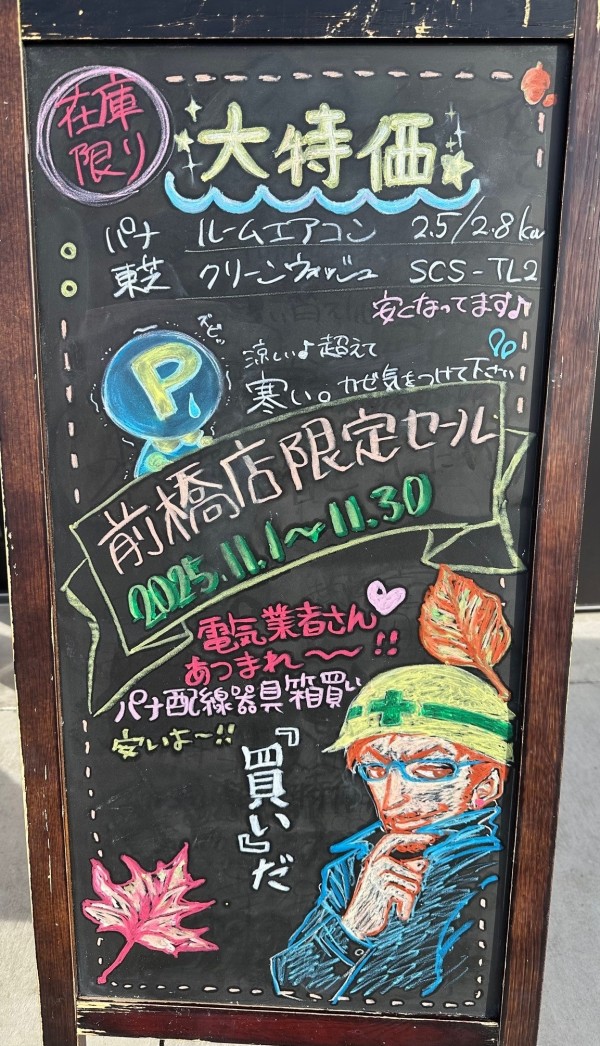 在庫
限り
大特価
パナ ルームエアコン 2.5/2.8kw
東芝 クリーンウォッシュ SCS-TL2
安くなってます♪
ズビッ
P
涼しい♪超えて
寒い。カゼ気をつけて下さい
前橋店限定セール
2025.11.1〜11.30
電気業者さん
あつまれ〜〜!!
パナ配線器具箱買い
安いよ〜!!
『買い』だ